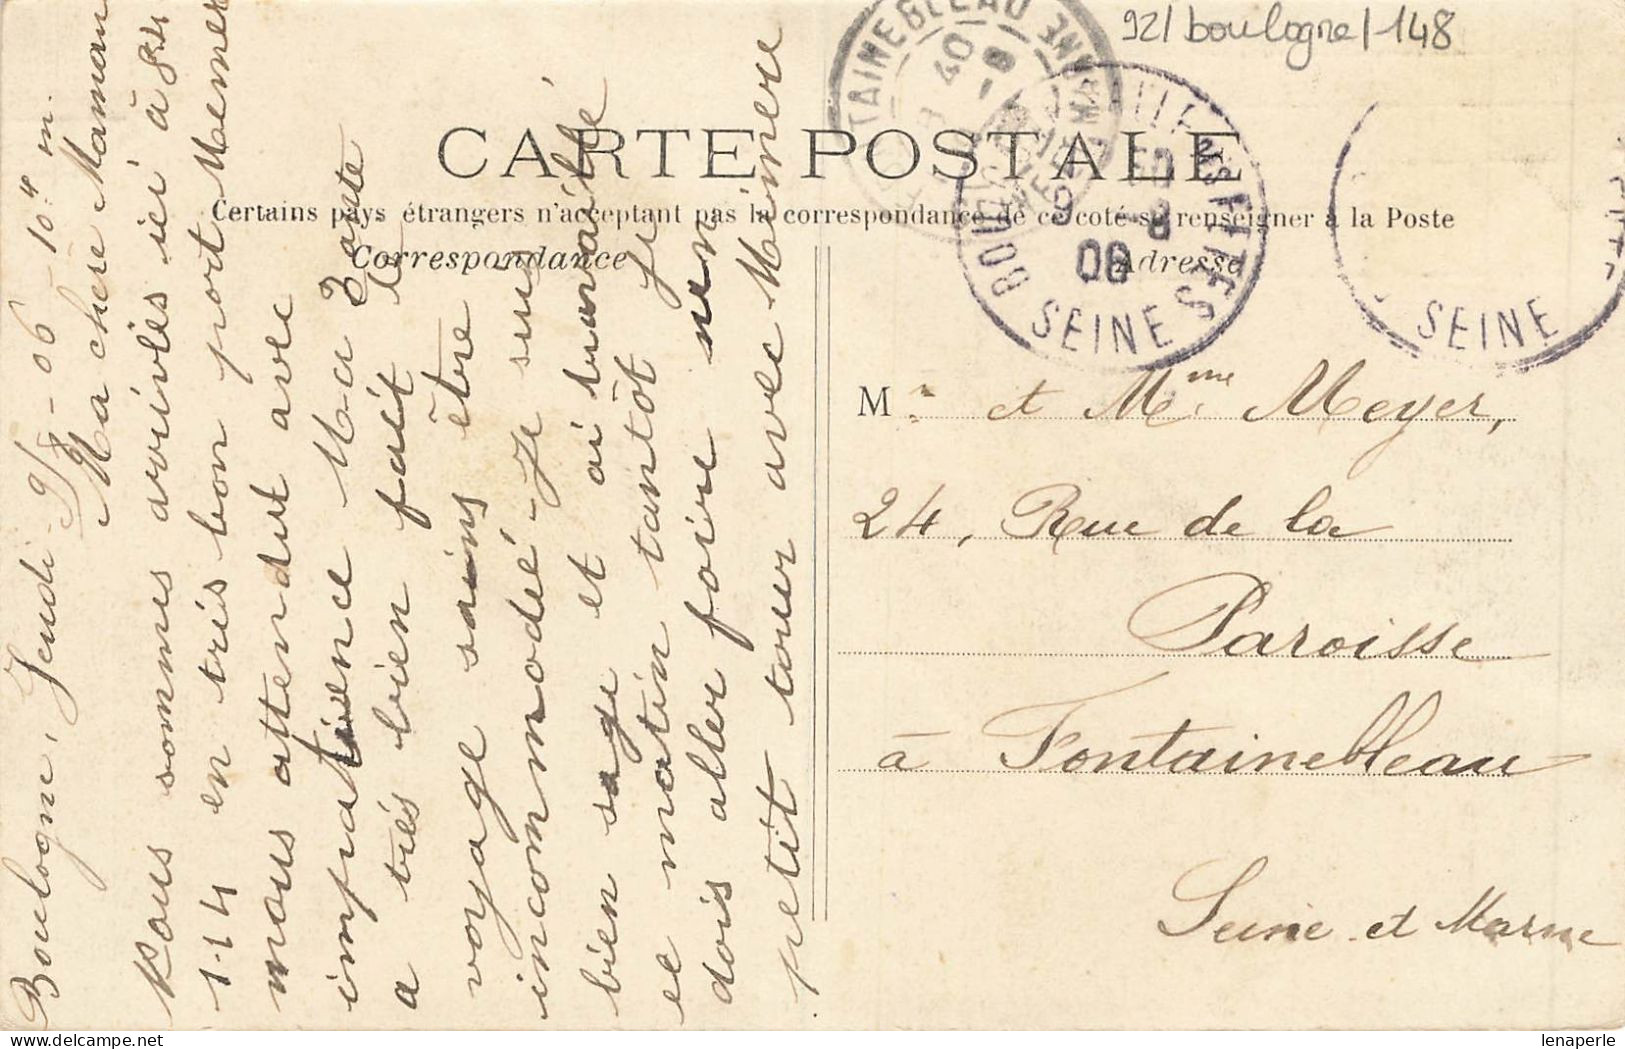 92/boulogne/148
CARTE POSTALE
Certains pays étrangers n'acceptant pas la correspondance de ce coté se renseigner à la Poste
Correspondance
Adresse
Boulogne, Jeudi 9/8-06 10h m.
Ma chère Maman
Nous sommes arrivés ici à 8h
1/4 en très bon port Memer
nous attendait avec
impatience Ma Tante
a très bien fait le
voyage sains être
incommodé - Je suis
bien sage et ai travaillé
ce matin tantôt je
dois aller foire un
petit tour avec Mémère
M r et Mme Meyer,
24, Rue de la
Paroisse
à Fontainebleau
Seine et Marne
FONTAINEBLEAU
SEINE ET MARNE
BOULOGNE
9 - 8
06
SEINE
SEINE
lenaperle